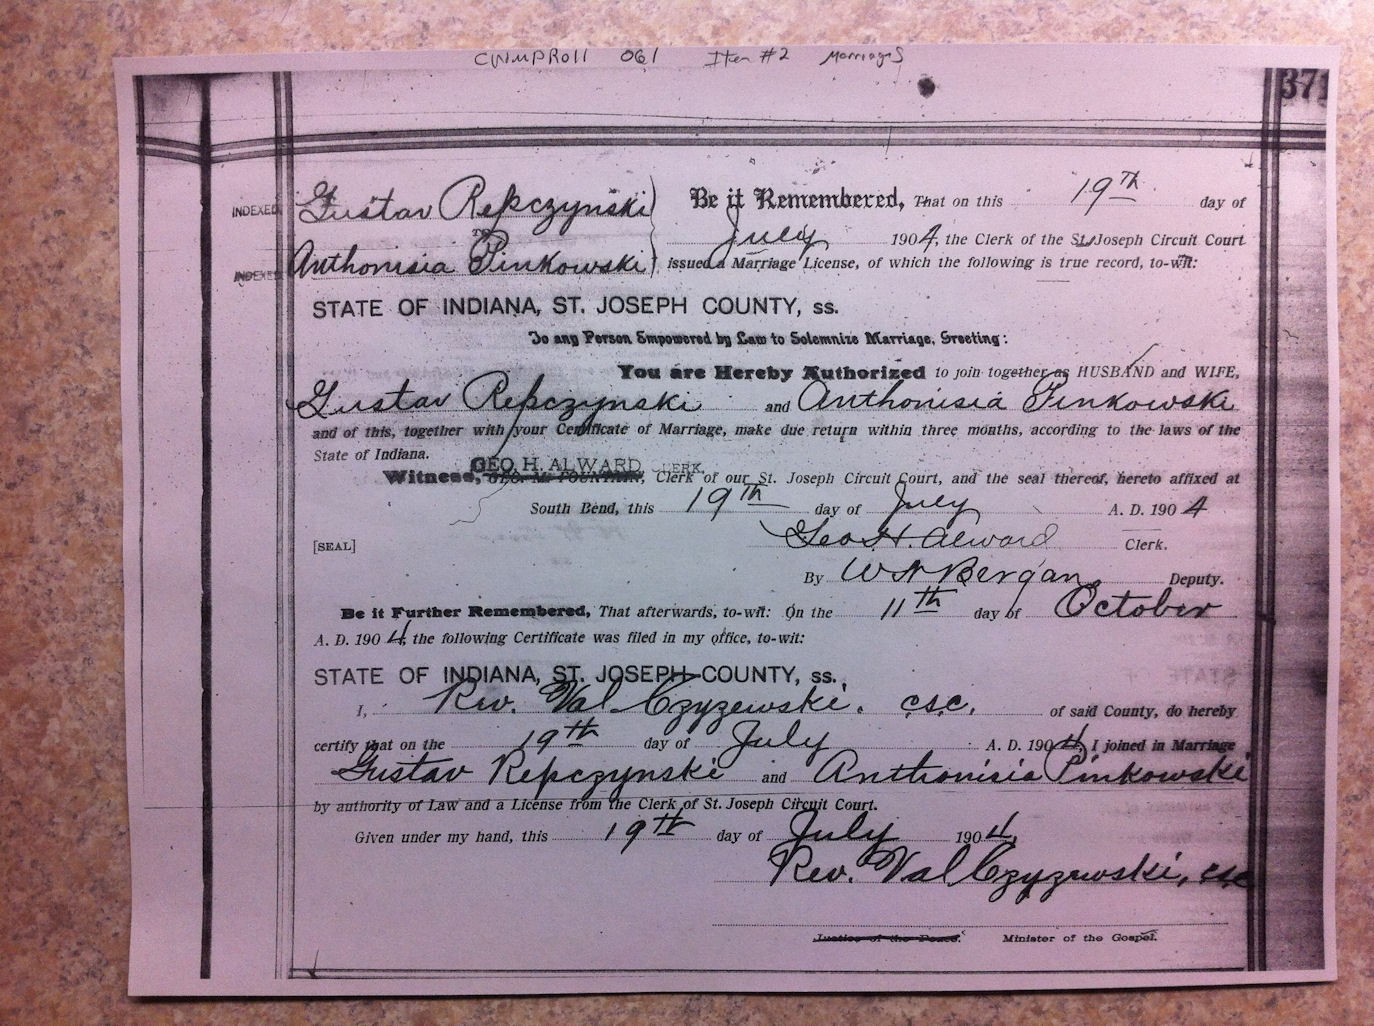 CWMPRoll 061 Item #2 Marriages
371
INDEXED Gustav Repczynski Be it Remembered, That on this 19th day of
TO July 1904, the Clerk of the St. Joseph Circuit Court
INDEXED Anthonisia Pinkowski issued a Marriage License, of which the following is true record, to-wit:
STATE OF INDIANA, ST. JOSEPH COUNTY, ss.
To any Person Empowered by Law to Solemnize Marriage, Greeting:
You are Hereby Authorized to join together as HUSBAND and WIFE,
Gustav Repczynski and Anthonisia Pinkowski
and of this, together with your Certificate of Marriage, make due return within three months, according to the laws of the
State of Indiana.
GEO. H. ALWARD CLERK.
Witness, GEO. M. FOUNTAIN, Clerk of our St. Joseph Circuit Court, and the seal thereof, hereto affixed at
South Bend, this 19th day of July A. D. 1904
Geo H. Alward Clerk.
[SEAL]
By W A Bergan Deputy.
Be it Further Remembered, That afterwards, to-wit: On the 11th day of October
A. D. 1904, the following Certificate was filed in my office, to-wit:
STATE OF INDIANA, ST. JOSEPH COUNTY, ss.
I, Rev. Val Czyzewski. c.s.c. of said County, do hereby
certify that on the 19th day of July A. D. 1904, I joined in Marriage
Gustav Repczynski and Anthonisia Pinkowski
by authority of Law and a License from the Clerk of St. Joseph Circuit Court.
Given under my hand, this 19th day of July 1904,
Rev. Val Czyzewski, c.s.c.
Justice of the Peace. Minister of the Gospel.